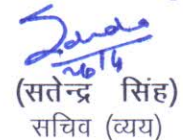 26/4
(सतेन्द्र सिंह)
सचिव (व्यय)